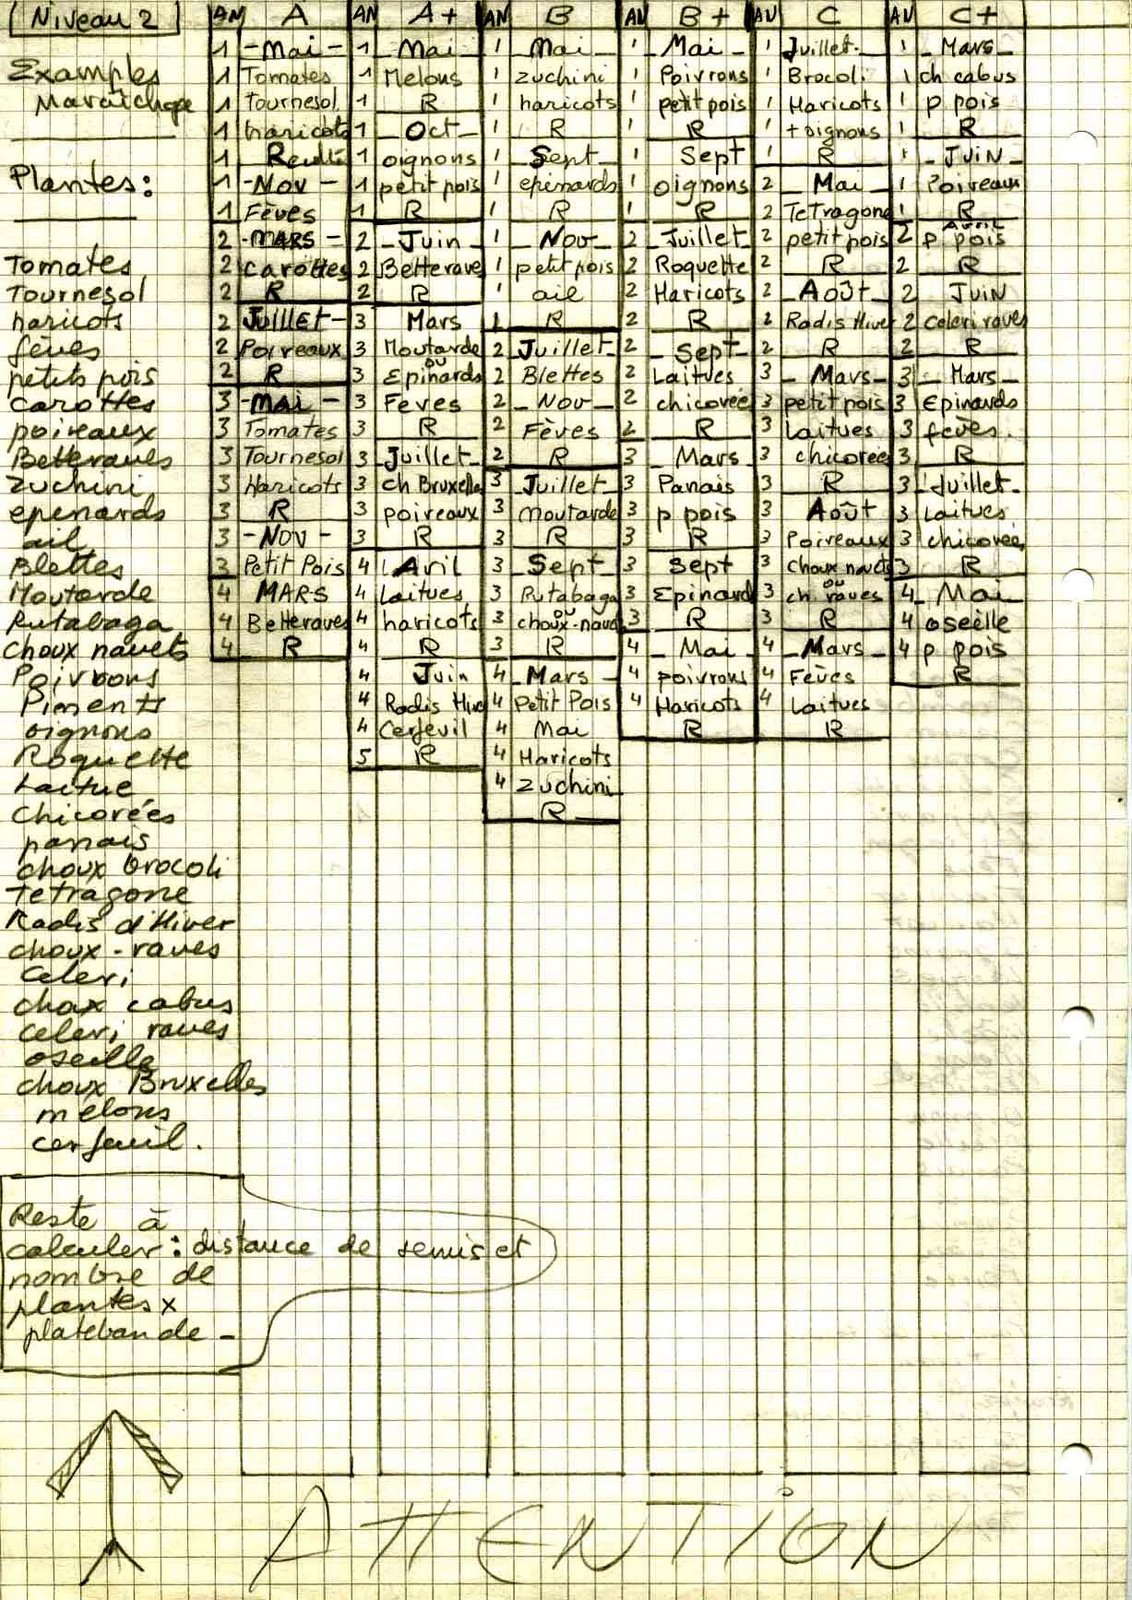 Niveau 2
Examples
Maraîchage
Plantes:
Tomates
Tournesol
haricots
fèves
petits pois
carottes
poireaux
Betteraves
zuchini
epenards
ail
Blettes
Moutarde
Rutabaga
choux navets
Poivrons
Piments
oignons
Roquette
Laitue
Chicorées
panais
choux brocoli
Tetragone
Radis d'Hiver
choux-raves
Celeri
chox cabus
celeri raves
oseille
choux Bruxelles
melons
cerfeuil.
AN A
1 - Mai -
1 Tomates
1 Tournesol
1 haricots
1 Recolte
1 - Nov -
1 Fèves
2 - MARS -
2 carottes
2 R
2 Juillet -
2 Poireaux
2 R
3 - Mai -
3 Tomates
3 Tournesol
3 Haricots
3 R
3 - Nov -
3 Petit Pois
4 MARS
4 Betteraves
4 R
AN A+
1 Mai
1 Melons
1 R
1 - Oct -
1 oignons
1 petit pois
1 R
2 - Juin -
2 Betterave
2 R
3 Mars
3 Moutarde
ou
3 Epinards
3 Feves
3 R
3 Juillet -
3 ch Bruxelles
3 poireaux
3 R
4 Avril
4 Laitues
4 haricots
4 R
4 Juin
4 Radis Hive
4 Cerfeuil
5 R
AN B
1 - Mai -
1 zuchini
1 haricots
1 R
1 Sept -
1 epinards
1 R
1 - Nov -
1 petit pois
1 ail
1 R
2 Juillet -
2 Blettes
2 - Nov -
2 Fèves
2 R
3 - Juillet -
3 moutarde
3 R
3 - Sept -
3 Rutabaga
ou
3 choux-nav
3 R
4 - Mars -
4 Petit Pois
4 Mai
4 Haricots
4 zuchini
R
AN B+
1 Mai -
1 Poivrons
1 petit pois
1 R
1 Sept
1 oignons
1 R
2 - Juillet -
2 Roquette
2 Haricots
2 R
2 - Sept -
2 Laitues
2 chicorée
2 R
3 - Mars -
3 Panais
3 p pois
3 R
3 Sept
3 Epinard
3 R
4 - Mai -
4 poivrons
4 Haricots
R
AN C
1 Juillet -
1 Brocoli
1 Haricots
1 + oignons
R
2 - Mai -
2 Tetragone
2 petit pois
2 R
2 - Août -
2 Radis Hiver
2 R
3 - Mars -
3 petit pois
3 Laitues
3 chicorée
3 R
3 Août
3 Poireaux
3 choux navets
ou
3 ch raves
3 R
4 - Mars -
4 Fèves
4 Laitues
R
AN C+
1 - Mars -
1 ch cabus
1 p pois
1 R
1 - JUIN -
1 Poireaux
1 R
AVRIL
2 p pois
2 R
2 JUIN
2 celeri raves
2 R
3 - Mars -
3 Epinards
3 fèves.
3 R
3 - Juillet -
3 Laitues
3 chicorée
3 R
4 - Mai -
4 oseille
4 p pois
R
Reste à
calculer: distance de semis et
nombre de
plantes x
platebande -
ATTENTION